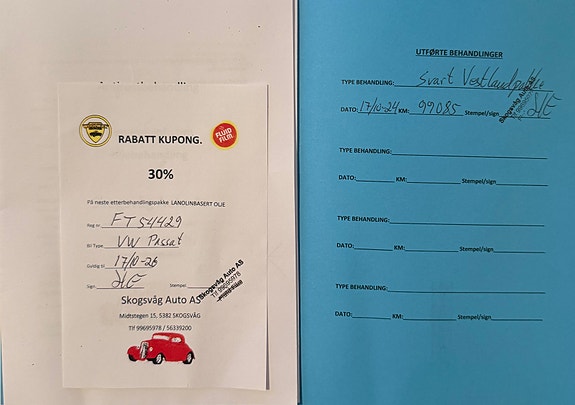 FLUID
FILM
RABATT KUPONG.
30%
På neste etterbehandlingspakke LANOLINBASERT OLJE
Reg nr. FT54429
Bil Type. VW Passat
Gyldig til 17/10-26
Sign Stempel
Skogsvåg Auto AS
Tlf 99695978
Skogsvåg Auto AS
Midtstegen 15, 5382 SKOGSVÅG
Tlf 99695978 / 56339200
UTFØRTE BEHANDLINGER
TYPE BEHANDLING: Svart Vestlandspakke
DATO: 17/10-24 KM: 99085 Stempel/sign
Skogsvåg Auto AS
TYPE BEHANDLING:
DATO: KM: Stempel/sign
TYPE BEHANDLING:
DATO: KM: Stempel/sign
TYPE BEHANDLING:
DATO: KM: Stempel/sign